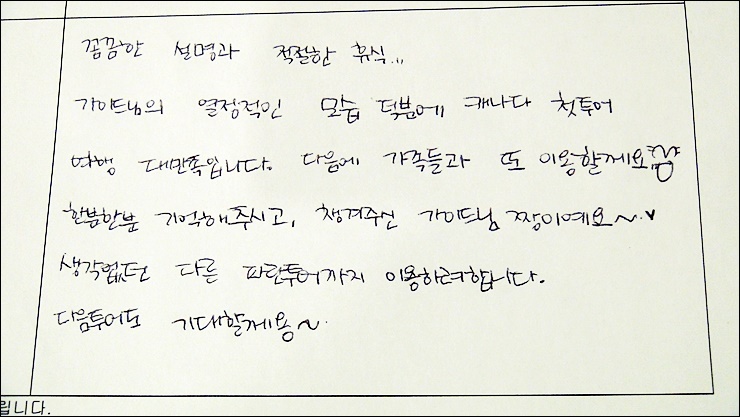 꼼꼼한 설명과 적절한 휴식...
가이드님의 열정적인 모습 덕분에 캐나다 첫투어
여행 대만족입니다. 다음에 가족들과 또 이용할께요
한분한분 기억해주시고, 챙겨주신 가이드님 짱이예요~♥
생각없던 다른 파란투어까지 이용하려합니다.
다음투어도 기대할께용~
립니다.